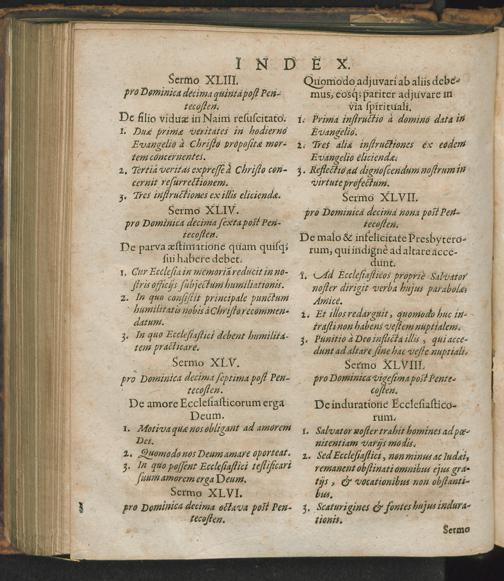 INDEX.
Sermo XLIII.
pro Dominica decima quinta post Pen-
tecosten.
De filio viduæ in Naim resuscitato.
1. Duæ primæ veritates in hodierno
Evangelio à Christo propositæ mor-
tem concernentes.
2. Tertia veritas expresse à Christo con-
cernit resurrectionem.
3. Tres instructiones ex illis eliciendæ.
Sermo XLIV.
pro Dominica decima sexta post Pen-
tecosten.
De parva æstimatione quam quisq;
sui habere debet.
1. Cur Ecclesia in memoriã reducit in no-
stris officijs subjectum humiliationis.
2. In quo consistit principale punctum
humilitatis nobis à Christo recommen-
datum.
3. In quo Ecclesiastici debent humilita-
tem practicare.
Sermo XLV.
pro Dominica decima septima post Pen-
tecosten.
De amore Ecclesiasticorum erga
Deum.
1. Motiva quæ nos obligant ad amorem
Dei.
2. Quomodo nos Deum amare oporteat.
3. In quo possent Ecclesiastici testificari
suum amorem erga Deum.
Sermo XLVI.
pro Dominica decima octava post Pen-
tecosten.
Quomodo adjuvari ab aliis debe-
mus, eosq; pariter adjuvare in
via spirituali.
1. Prima instructio à domino data in
Evangelio.
2. Tres aliæ instructiones ex eodem
Evangelio eliciendæ.
3. Reflectio ad dignoscendum nostrum in
virtute profectum.
Sermo XLVII.
pro Dominica decima nona post Pen-
tecosten.
De malo & infelicitate Presbytero-
rum, qui indignè ad altare acce-
dunt.
1. Ad Ecclesiasticos propriè Salvator
noster dirigit verba hujus parabolæ:
Amice.
2. Et illos redarguit, quomodo huc in-
trasti non habens vestem nuptialem.
3. Punitio à Deo inflicta illis, qui acce-
dunt ad altare sine hac veste nuptiali.
Sermo XLVIII.
pro Dominica vigesima post Pente-
costen.
De induratione Ecclesiastico-
rum.
1. Salvator noster trahit homines ad pœ-
nitentiam varijs modis.
2. Sed Ecclesiastici, non minus ac Iudæi,
remanent obstinati omnibus ejus gra-
tijs, & vocationibus non obstanti-
bus.
3. Scaturigines & fontes hujus indura-
tionis.
Sermo